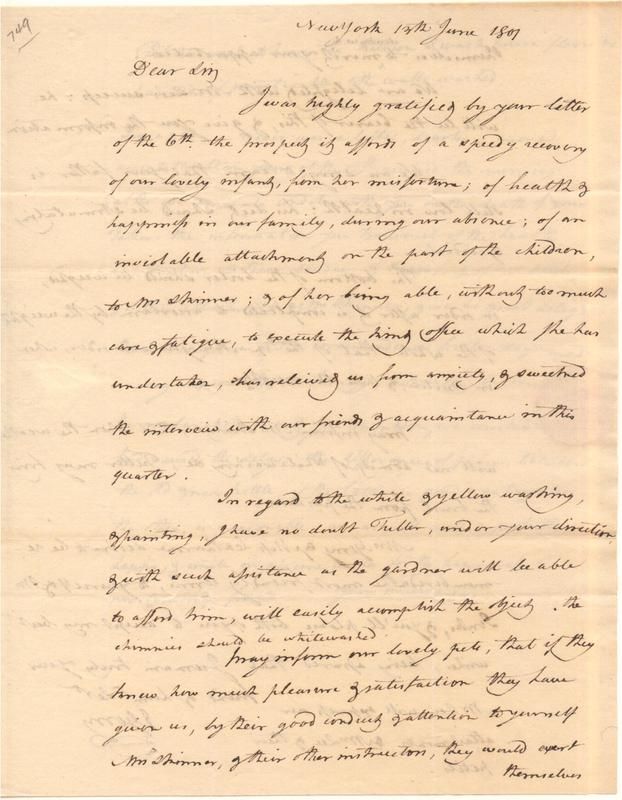 749
New York 12th June 1801
Dear Sir,
I was highly gratified by your letter
of the 6th. the prospect it affords of a speedy recovery
of our lovely infant, from her misfortune; of health &
happiness in our family, during our absence; of an
inviolable attachment on the part of the children,
to Mrs Skinner; & of her being able, without too much
care & fatigue, to execute the kind office which she has
undertaken, has relieved us from anxiety, & sweetned
the interview with our friends & acquaintance in this
quarter.
In regard to the white & yellow washing,
& painting, I have no doubt Tuller, under your direction
& with such assistance as the gardner will be able
to afford him, will easily accomplish the object. the
chimnies should be whitewashed.
pray inform our lovely pets, that if they
knew how much pleasure & satisfaction they have
given us, by their good conduct & attention to yourself
Mrs Skinner, & their other instructors, they would exert
themselves